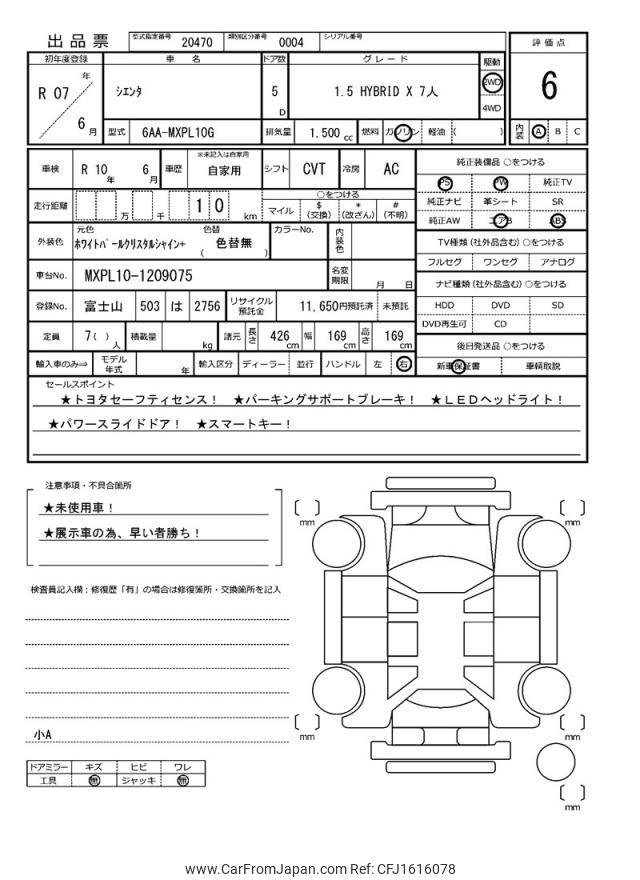 出品票 型式指定番号 20470 類別区分番号 0004 シリアル番号
評価点
6
内装 A B C
初年度登録 車名 ドア数 グレード 駆動
R 07 年 6 月 シエンタ 5 D 1.5 HYBRID X 7人 2WD 4WD
型式 6AA-MXPL10G 排気量 1.500 cc 燃料 ガソリン 軽油 ( )
車検 R 10 年 6 月 車歴 ※未記入は自家用 自家用 シフト CVT 冷房 AC
走行距離 万 千 1 0 km ○をつける
マイル $(交換) *(改ざん) #(不明)
外装色 元色 ホワイトパールクリスタルシャイン+ 色替 ( 色替無 ) カラーNo. 内装色
車台No. MXPL10-1209075 名変期限 月 日
登録No. 富士山 503 は 2756 リサイクル預託金 11,650円預託済 未預託
定員 7( )人 積載量 kg 諸元 長さ 426 cm 幅 169 cm 高さ 169 cm
輸入車のみ⇒ モデル年式 年 輸入区分 ディーラー 並行 ハンドル 左 右
純正装備品 ○をつける
PS PW 純正TV
純正ナビ 革シート SR
純正AW エアB ABS
TV種類(社外品含む)○をつける
フルセグ ワンセグ アナログ
ナビ種類(社外品含む)○をつける
HDD DVD SD
DVD再生可 CD
後日発送品 ○をつける
新車保証書 車輌取説
セールスポイント
★トヨタセーフティセンス! ★パーキングサポートブレーキ! ★LEDヘッドライト!
★パワースライドドア! ★スマートキー!
注意事項・不具合箇所
★未使用車!
★展示車の為、早い者勝ち!
検査員記入欄:修復歴「有」の場合は修復箇所・交換箇所を記入
小A
ドアミラー キズ ヒビ ワレ
工具 無 ジャッキ 無
mm
mm
mm
mm
mm
www.CarFromJapan.com Ref: CFJ1616078